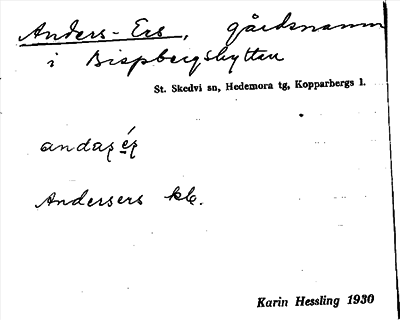 Anders-Ers, gårdsnamn
i Bispbergshyttan
St. Skedvi sn, Hedemora tg, Kopparbergs l.
Anderses kb.
Karin Hessling 1930